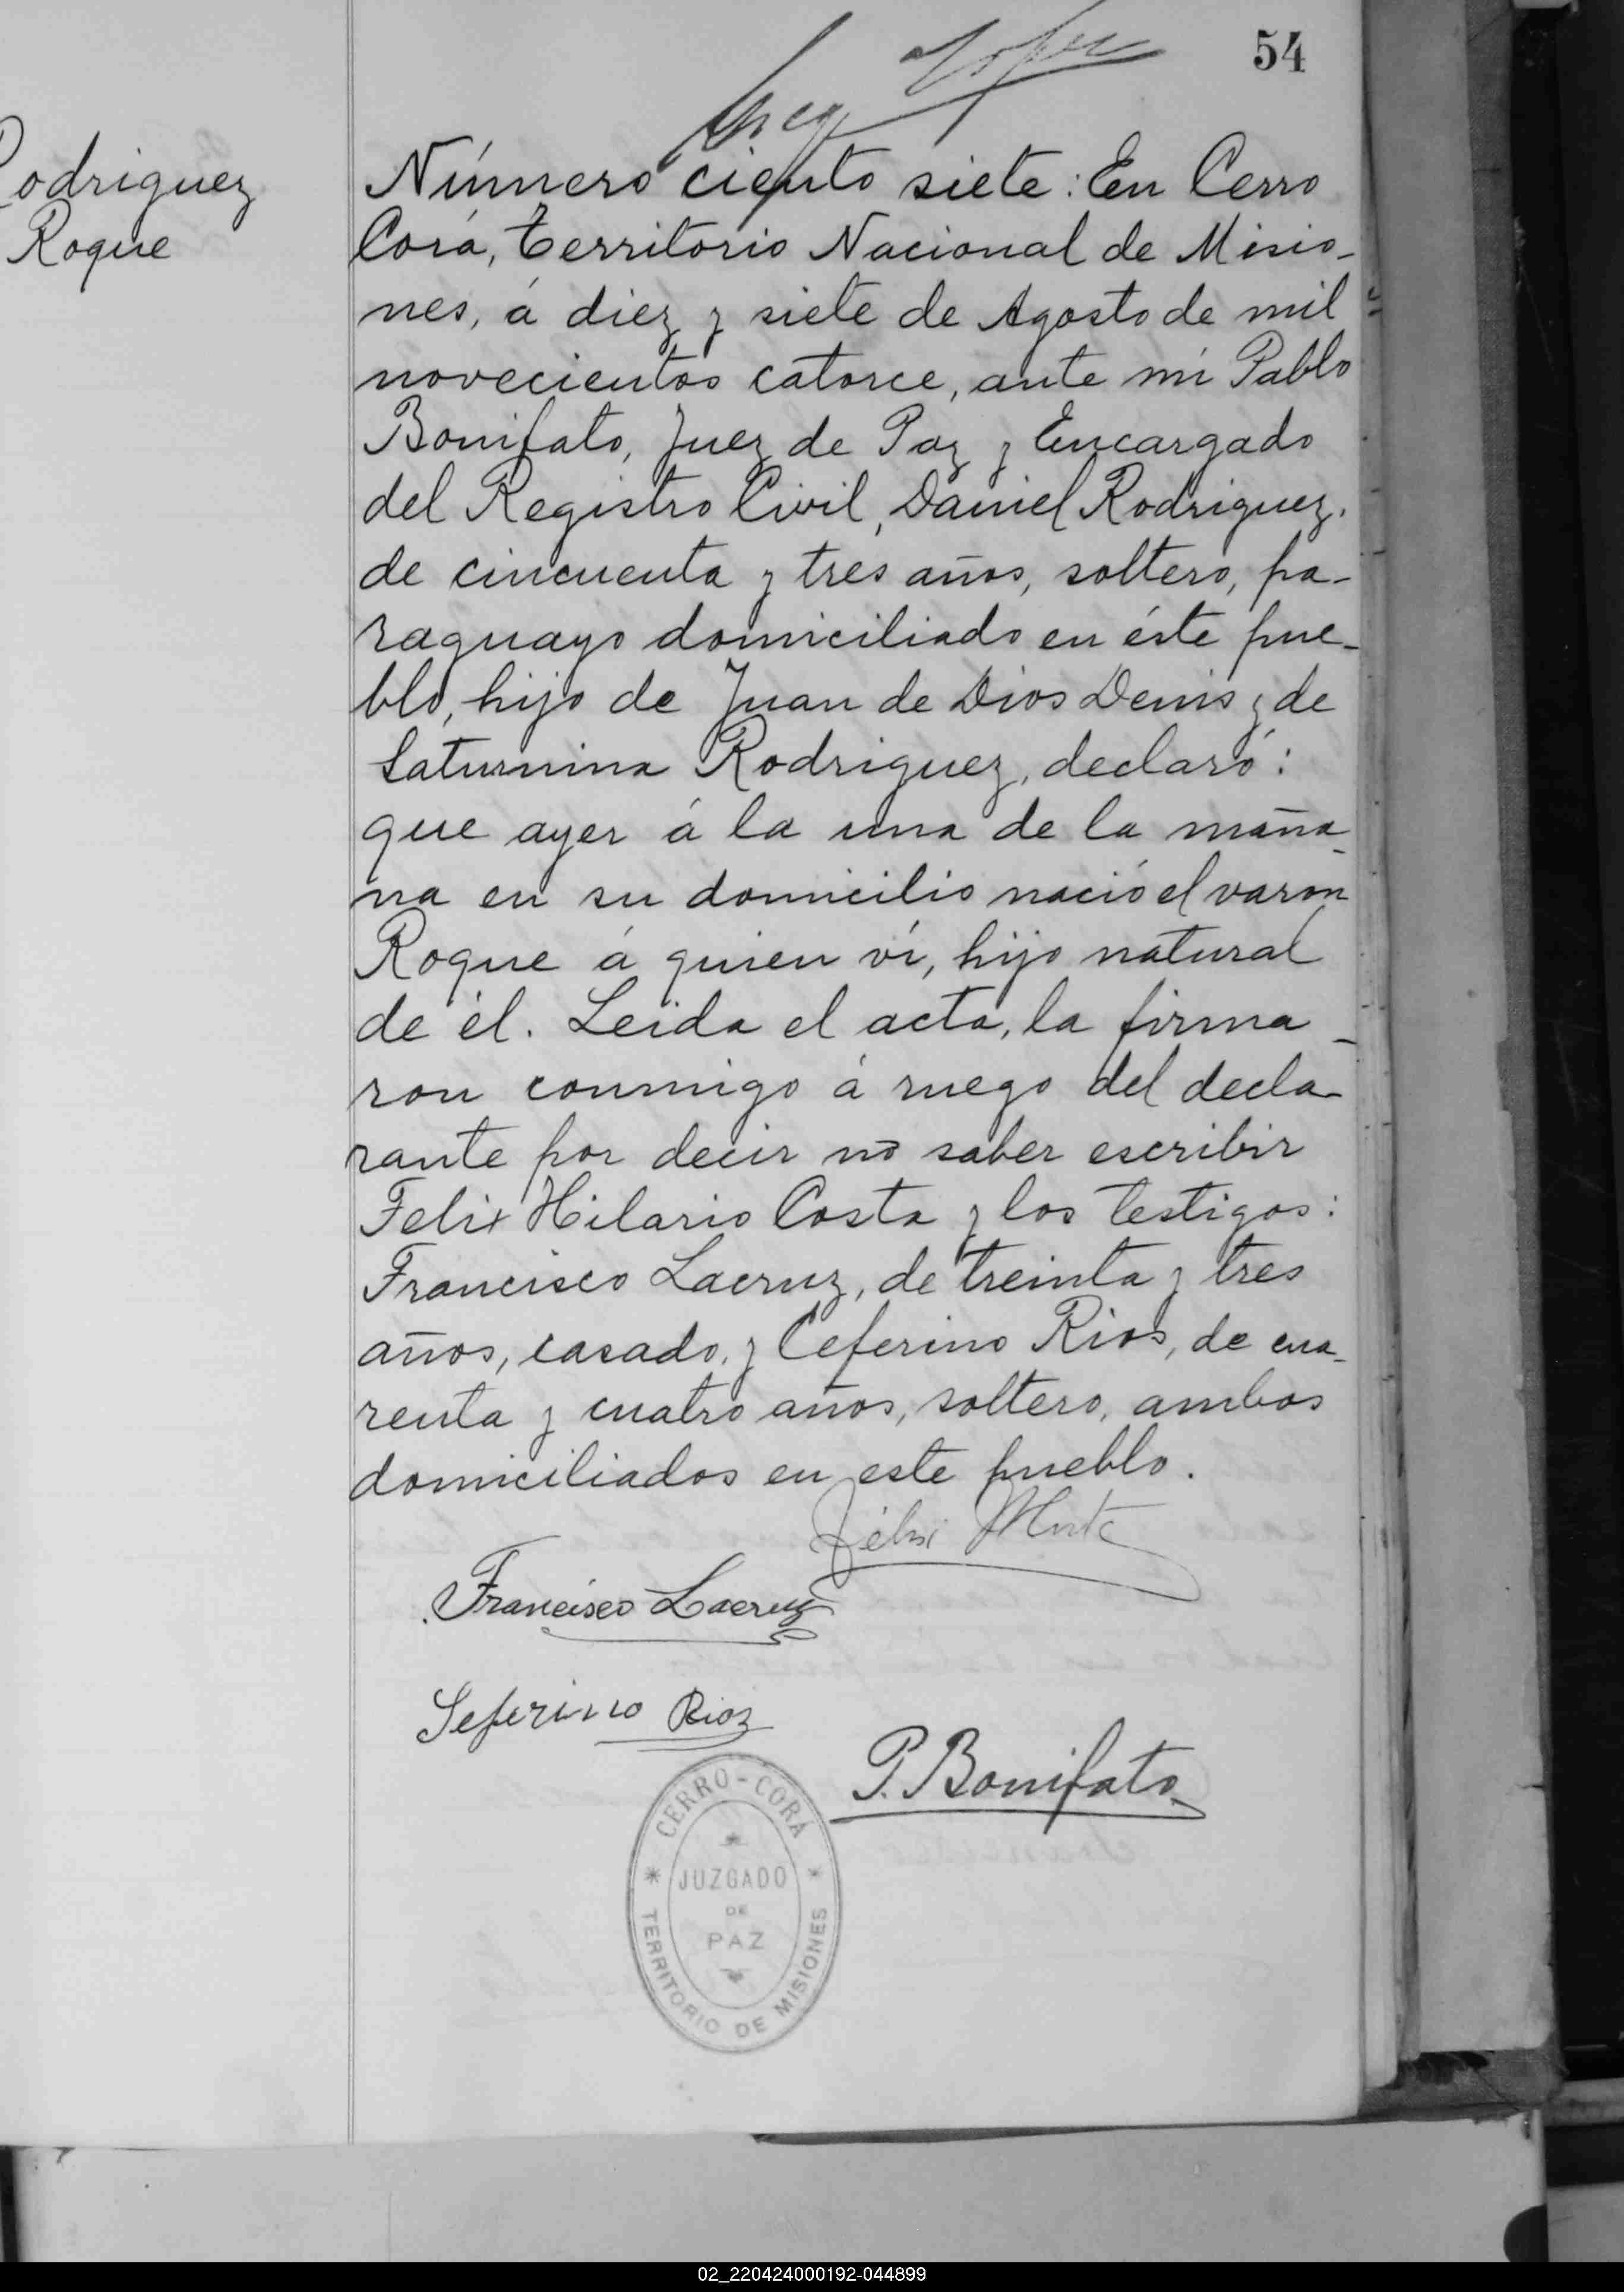 54
Rodriguez
Roque
Número ciento siete: En Cerro
Corá, territorio Nacional de Misio-
nes, á diez y siete de Agosto de mil
novecientos catorce, ante mí Pablo
Bonifato, Juez de Paz y Encargado
del Registro Civil, Daniel Rodriguez,
de cincuenta y tres años, soltero, pa-
raguayo domiciliado en éste pue-
blo, hijo de Juan de Dios Denis y de
Saturnina Rodriguez, declaró:
que ayer á la una de la maña-
na en su domicilio nació el varon
Roque á quien ví, hijo natural
de él. Leida el acta, la firma-
ron conmigo á ruego del decla-
rante por decir no saber escribir
Felix Hilario Costa y los testigos:
Francisco Lacruz, de treinta y tres
años, casado, y Ceferino Rios, de cua-
renta y cuatro años, soltero, ambos
domiciliados en este pueblo.
Francisco Lacruz
Seferino Rioz
P. Bonifato
CERRO-CORÁ
JUZGADO
DE
PAZ
TERRITORIO DE MISIONES
02_220424000192-044899